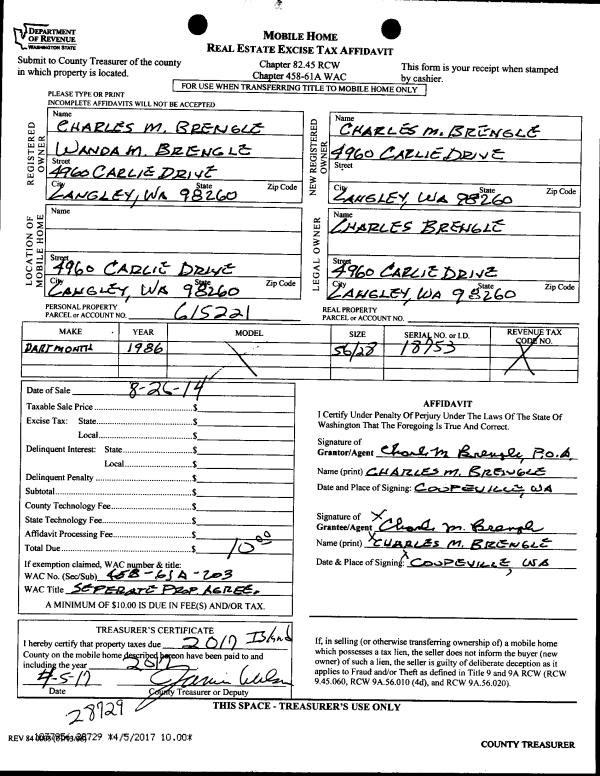 DEPARTMENT
OF REVENUE
WASHINGTON STATE
MOBILE HOME
REAL ESTATE EXCISE TAX AFFIDAVIT
Submit to County Treasurer of the county
in which property is located.
Chapter 82.45 RCW
Chapter 458-61A WAC
This form is your receipt when stamped
by cashier.
FOR USE WHEN TRANSFERRING TITLE TO MOBILE HOME ONLY
PLEASE TYPE OR PRINT
INCOMPLETE AFFIDAVITS WILL NOT BE ACCEPTED
REGISTERED OWNER
Name
CHARLES M. BRENGLE
WANDA M. BRENGLE
Street
4960 CARLIE DRIVE
City State Zip Code
LANGLEY, WA 98260
NEW REGISTERED OWNER
Name
CHARLES M. BRENGLE
4960 CARLIE DRIVE
Street
City State Zip Code
LANGLEY, WA 98260
LOCATION OF MOBILE HOME
Name
Street
4960 CARLIE DRIVE
City State Zip Code
LANGLEY, WA 98260
LEGAL OWNER
Name
CHARLES BRENGLE
Street
4960 CARLIE DRIVE
City State Zip Code
LANGLEY, WA 98260
PERSONAL PROPERTY
PARCEL or ACCOUNT NO. 615221
REAL PROPERTY
PARCEL or ACCOUNT NO.
MAKE YEAR MODEL SIZE SERIAL NO. or I.D. REVENUE TAX CODE NO.
DARTMONTH 1986 56/28 18953
Date of Sale 8-26-14
Taxable Sale Price $
Excise Tax: State $
Local $
Delinquent Interest: State $
Local $
Delinquent Penalty $
Subtotal $
County Technology Fee $
State Technology Fee $
Affidavit Processing Fee $
Total Due $ 10.00
If exemption claimed, WAC number & title:
WAC No. (Sec/Sub) 458-61A-203
WAC Title SEPERATE PROP AGREE.
A MINIMUM OF $10.00 IS DUE IN FEE(S) AND/OR TAX.
AFFIDAVIT
I Certify Under Penalty Of Perjury Under The Laws Of The State Of
Washington That The Foregoing Is True And Correct.
Signature of
Grantor/Agent Charles M Brengle, P.O.A,
Name (print) CHARLES M. BRENGLE
Date and Place of Signing: COUPEVILLE, WA
Signature of X
Grantee/Agent Charles M. Brengle
Name (print) CHARLES M. BRENGLE
Date & Place of Signing: COUPEVILLE, WA
TREASURER'S CERTIFICATE
I hereby certify that property taxes due 2017 Island
County on the mobile home described hereon have been paid to and
including the year 2017
4-5-17
Date County Treasurer or Deputy
28729
If, in selling (or otherwise transferring ownership of) a mobile home
which possesses a tax lien, the seller does not inform the buyer (new
owner) of such a lien, the seller is guilty of deliberate deception as it
applies to Fraud and/or Theft as defined in Title 9 and 9A RCW (RCW
9.45.060, RCW 9A.56.010 (4d), and RCW 9A.56.020).
THIS SPACE - TREASURER'S USE ONLY
REV 84 28729 *4/5/2017 10.00*
COUNTY TREASURER